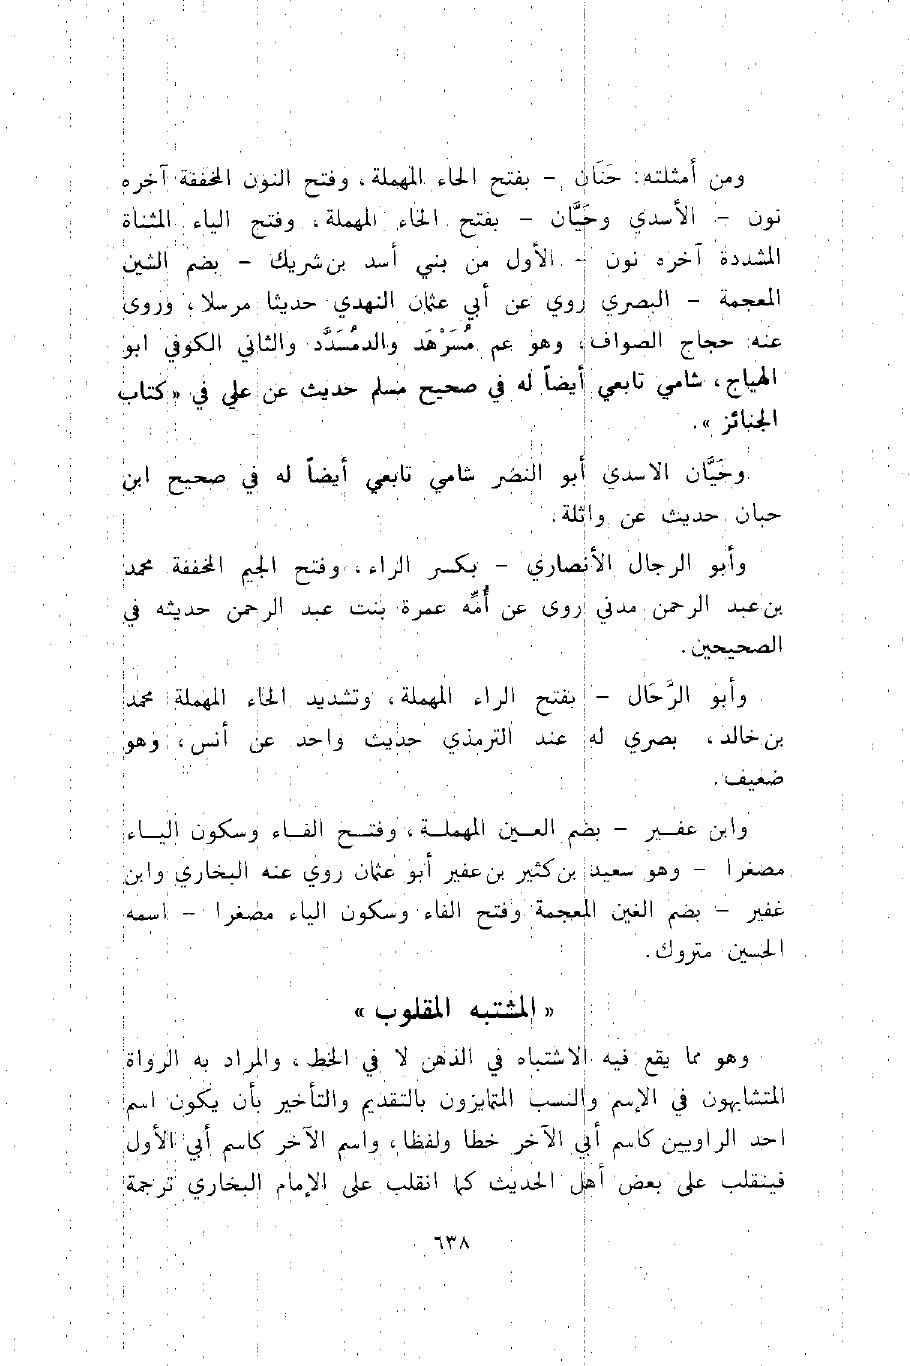 ومن أمثلته: حَنَان - بفتح الحاء المهملة، وفتح النون المخففة آخره
نون - الأسدي وحَيَّان - بفتح الحاء المهملة، وفتح الياء المثناة
المشددة آخره نون - الأول من بني أسد بن شريك - بضم الشين
المعجمة - البصري روي عن أبي عثمان النهدي حديثا مرسلا، وروى
عنه حجاج الصواف، وهو عم مُسَرْهَد والدمُسَدَّد والثاني الكوفي ابو
الهياج، شامي تابعي أيضاً له في صحيح مسلم حديث عن علي في «كتاب
الجنائز».
وحَيَّان الاسدي أبو النضر شامي تابعي أيضاً له في صحيح ابن
حبان حديث عن واثلة.
وأبو الرجال الأنصاري - بكسر الراء، وفتح الجيم المخففة محمد
بن عبد الرحمن مدني روى عن أُمِّه عمرة بنت عبد الرحمن حديثه في
الصحيحين.
وأبو الرَّحَال - بفتح الراء المهملة، وتشديد الحاء المهملة محمد
بن خالد، بصري له عند الترمذي حديث واحد عن أنس، وهو
ضعيف.
وابن عفير - بضم العين المهملة، وفتح الفاء وسكون الياء
مصغرا - وهو سعيد بن كثير بن عفير أبو عثمان روي عنه البخاري وابن
غفير - بضم الغين المعجمة وفتح الفاء وسكون الياء مصغرا - اسمه
الحسين متروك.
«المشتبه المقلوب»
وهو مما يقع فيه الاشتباه في الذهن لا في الخط، والمراد به الرواة
المتشابهون في الإسم والنسب المتمايزون بالتقديم والتأخير بأن يكون اسم
احد الراويين كاسم أبي الآخر خطا ولفظا، واسم الآخر كاسم أبي الأول
فينقلب على بعض أهل الحديث كما انقلب على الإمام البخاري ترجمة
٦٣٨